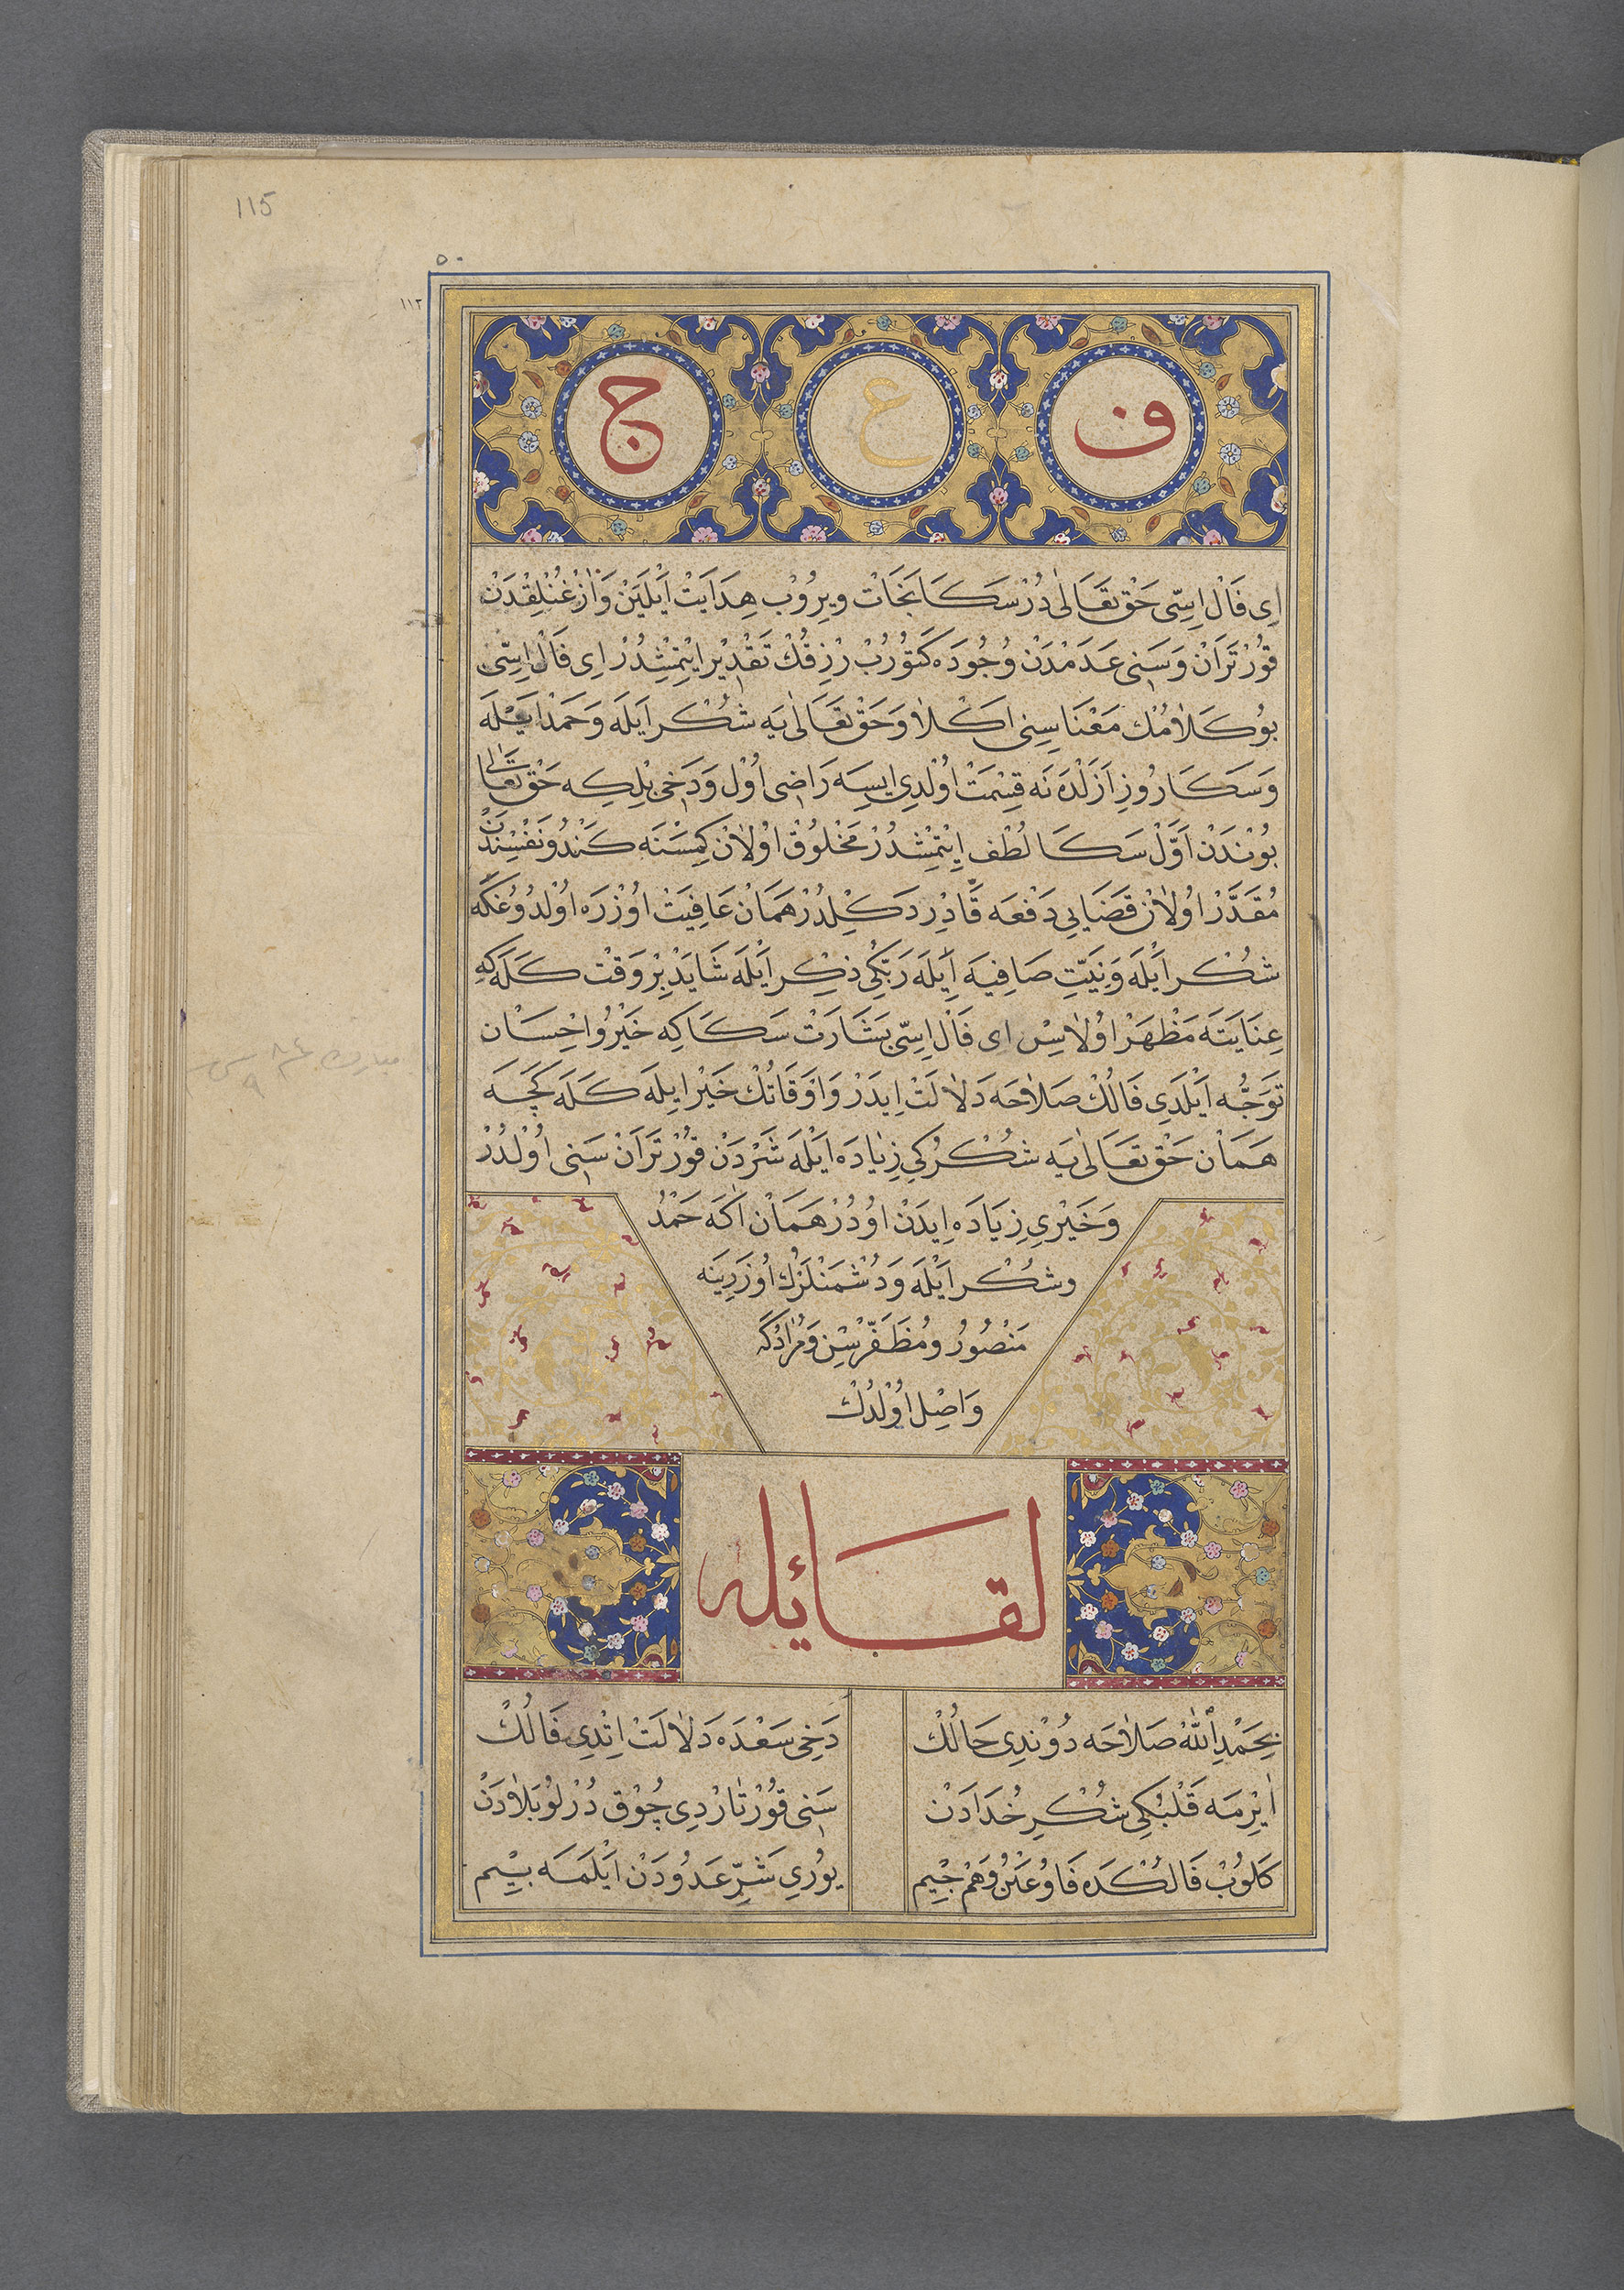 115
٥٠
١١٢
ف ع ج
اِی فَالْ اِسِّی حَقْ تَعَالٰی دُرْ سَكَا نَجَاتْ ویِرُوْبْ هِدَایَتْ اَیْلَیَنْ وَاَزْغُنْلِقْدَنْ
قُوْرْتَرَانْ وَسَنِی عَدَمْدَنْ وُجُودَه كَتُوْرُبْ رْزِقُكْ تَقْدِیْر اِیْتِمْشِدُرْ اِی فَالْ اِسِّی
بُوكَلَامُكْ مَعْنَاسِنِی اكْلَا وَحَقْ تَعَالٰی یَه شُكْر اَیْلَه وَحَمْد اَیْلَه
وَسَكَا رُوزِ اَزَلْدَه نَه قِسْمَتْ اُوْلْدِی اِیسَه رَاضِی اُوْل وَدَخِی بْلِكِه حَقْ تَعَالٰی
بُوْنْدَنْ اَوَّلْ سَكَا لُطْف اِیْتِمْشْدُرْ مَخْلُوقْ اوُلَانْ كِمِسْنَه كَنْدُو نَفْسِنْدَنْ
مُقَدَّرْ اوُلَانْ قَضَایِی دَفْعَه قَادِرْ دَكِلْدُرْ هَمَانْ عَافِیَتْ اوُزْرَه اوُلْدُوُغْكَه
شُكْر اَیْلَه وَنِیَّتِ صَافِیَه اِیَلَه رَبِّكِی ذِكْر اَیْلَه شَایَدْ بِرْ وَقْت كَلَه كِه
عِنَایَتَه مَظْهَرْ اوُلَاسِنْ ای فَالْ اِسِّی بَشَارَتْ سَكَا كِه خَیْرُ واِحْسَان
تَوَجُّه اَیْلَدِی فَالُكْ صَلَاحَه دَلَالَتْ اِیدَرْ وَاَوْقَاتُكْ خَیْر ایِلَه كَلَه كَچَه
هَمَانْ حَقْ تَعَالٰی یَه شُكْرُكِی زِیَادَه اَیْلَه شَرْدَنْ قُوْرْتَرَانْ سَنِی اُوْلْدُرْ
وَخَیْرِی زِیَادَه اِیدَنْ اوُدُرْ هَمَانْ اَكَه حَمْدُ
وشُكْر اَیْلَه وَدُشْمَنْلَرْكْ اُوْزَرِینَه
مَنْصُورْ ومُظَفَّرْسِنْ وَمُرَادُكَه
وَاصِل اُوْلْدُكْ
لقائله
بِحَمْدِ اللّٰه صَلَاحَه دُوْنْدِی حَالُكْ
دَخِی سَعْدَه دَلَالَتْ اِتْدِی فَالُكْ
اَیِرْمَه قَلْبُكِی شُكْرِ خُدَادَنْ
سَنِی قُوْرْتَارْدِی چُوْق دُرْلُو بَلَادَنْ
كَلُوبْ فَالُكْدَه فَاوُ عَیْنُ وَهَمْ جِیم
یوُرِی شَرِّ عَدُودَنْ اَیْلَمَه بِیْم